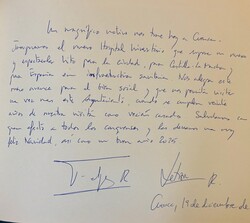 Un magnífico motivo nos trae hoy a Cuenca:
inauguramos el nuevo Hospital Universitario que supone un nuevo
y espectacular hito para la ciudad, para Castilla-La Mancha y
para España en infraestructura sanitaria. Nos alegra este
nuevo avance para el bien social y que nos permite visitar
una vez más este Ayuntamiento, cuando se cumplen veinte
años de nuestra visita como recién casados. Saludamos con
gran afecto a todos los conquenses y les deseamos una muy
feliz Navidad, así como un buen año 2025
Felipe R. Letizia R.
Cuenca, 19 de diciembre de